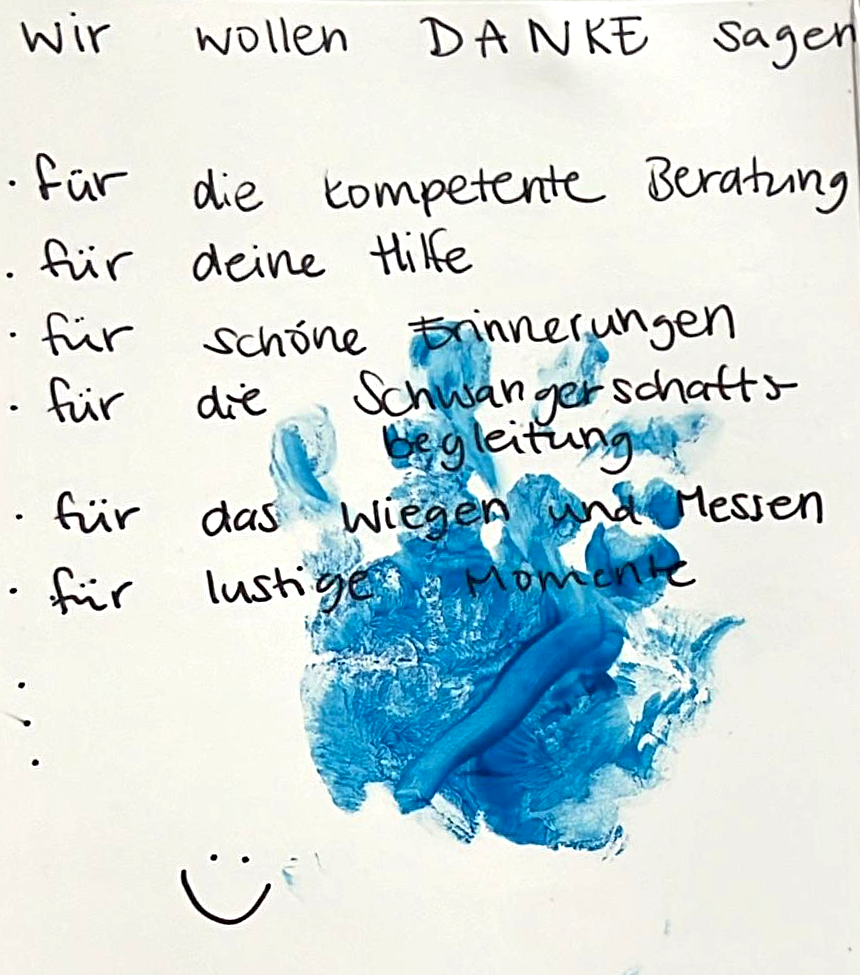 Wir wollen DANKE sagen
· für die kompetente Beratung
· für deine Hilfe
· für schöne Erinnerungen
· für die Schwangerschafts-
begleitung
· für das Wiegen und Messen
· für lustige Momente